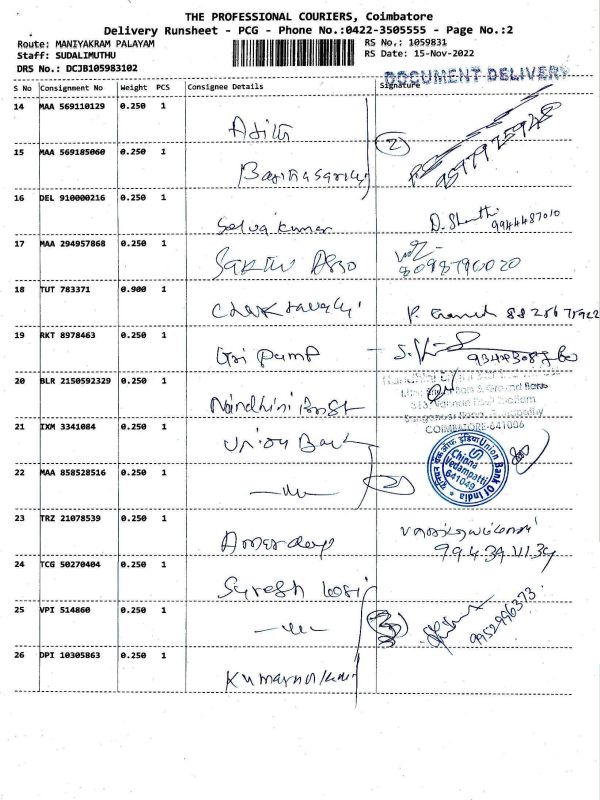 THE PROFESSIONAL COURIERS, Coimbatore
Delivery Runsheet - PCG - Phone No.:0422-3505555 - Page No.:2
Route: MANIYAKRAM PALAYAM
RS No.: 1059831
Staff: SUDALIMUTHU
RS Date: 15-Nov-2022
DRS No.: DCJB105983102
DOCUMENT DELIVERY
S No Consignment No Weight PCS Consignee Details Signature
14 MAA 569110129 0.250 1
2
15 MAA 569185060 0.250 1
16 DEL 910000216 0.250 1
Selvakumar D. Shanthi
9944487010
17 MAA 294957868 0.250 1
8098790020
18 TUT 783371 0.900 1
19 RKT 8978463 0.250 1
Gri Pump
20 BLR 2150592329 0.250 1
Nandhini
21 IXM 3341084 0.250 1
COIMBATORE-641006
Union Bank
Union Bank Of India
Chinna
Vedampatti
641049
22 MAA 858528516 0.250 1
2
23 TRZ 21078539 0.250 1
Amerdeep
99439 11134
24 TCG 50270404 0.250 1
Suresh
25 VPI 514860 0.250 1
3
9952996373
26 DPI 10305863 0.250 1